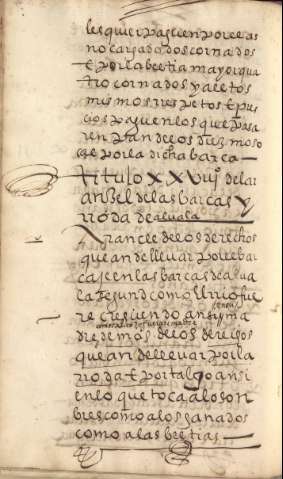 les quier pasaren por ellas
no cargada dos cornados
E por la bestia mayor qua
tro cornados y a estos
mismos respetos E pre
cios paguen los que pasa
ren pan de los diezmos o
se por la dicha barca
Titulo XXVIIIº del ar
anzel de las barcas y
rroda de alcala
Aranzel de los derechos
que an de llevar por la bar
ca se en las barcas de alca
la segund como el rrio fue
re cresiendo an syma
dre demos de los derechos
que an de llevar por la
rroda E portalgo ansi
en lo que toca a los on
bres como a los ganados
como a las bestias